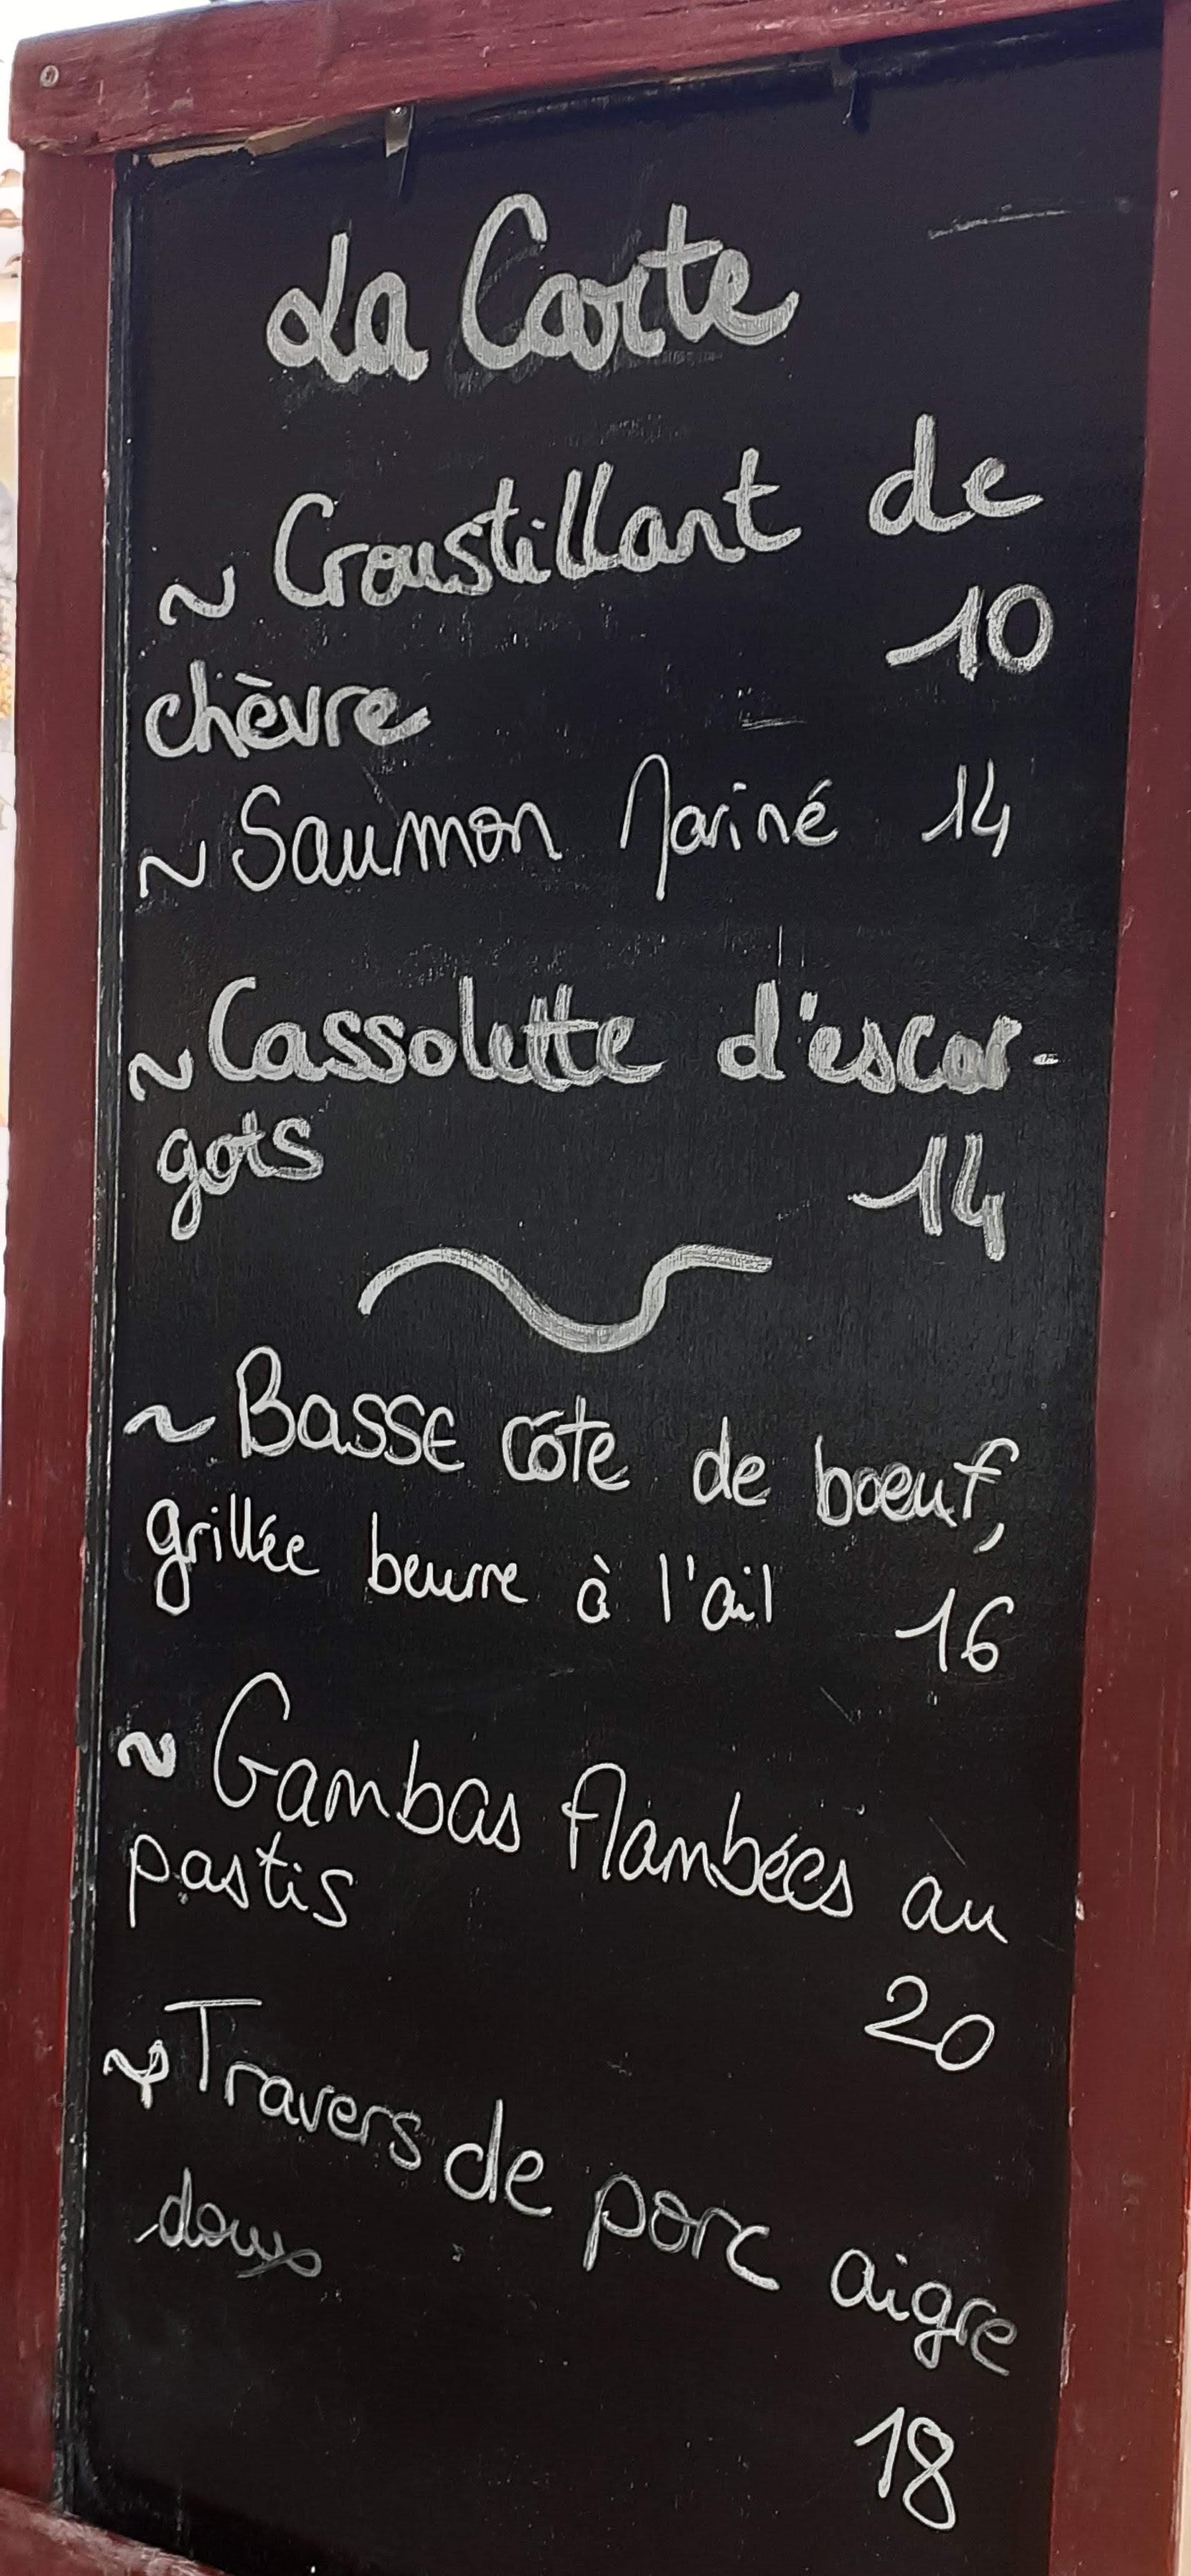 La Carte
~ Croustillant de
10
chèvre
~ Saumon Mariné 14
~ Cassolette d'escar-
gots 14
~ Basse côte de boeuf,
grillée beurre à l'ail 16
~ Gambas flambées au
pastis
20
~ Travers de porc aigre
doux
18